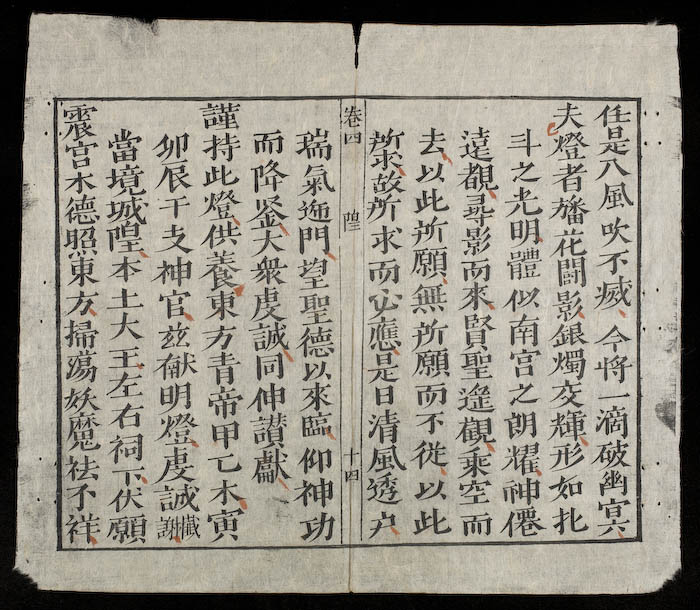 任是八風吹不滅、今將一滴破幽㝠、
夫燈者旛花鬪影、銀燭交輝、形如北
斗之光明、體似南宫之朗耀、神僊
遠覩、尋影而來、賢聖遥觀、乘空而
去、以此所願、無所願而不從、以此
所求、故所求而必應、是日清風透户、
卷四 隍 十四
瑞氣迎門、望聖德以來臨、仰神功
而降鉴、大衆虔誠、同伸讃獻、
謹持此燈、供養東方青帝甲乙木寅
卯辰干支神官、兹献明燈、虔誠懺謝
當境城隍、本土大王、左右祠下、伏願
震宫木德照東方、掃蕩妖魔祛不祥、